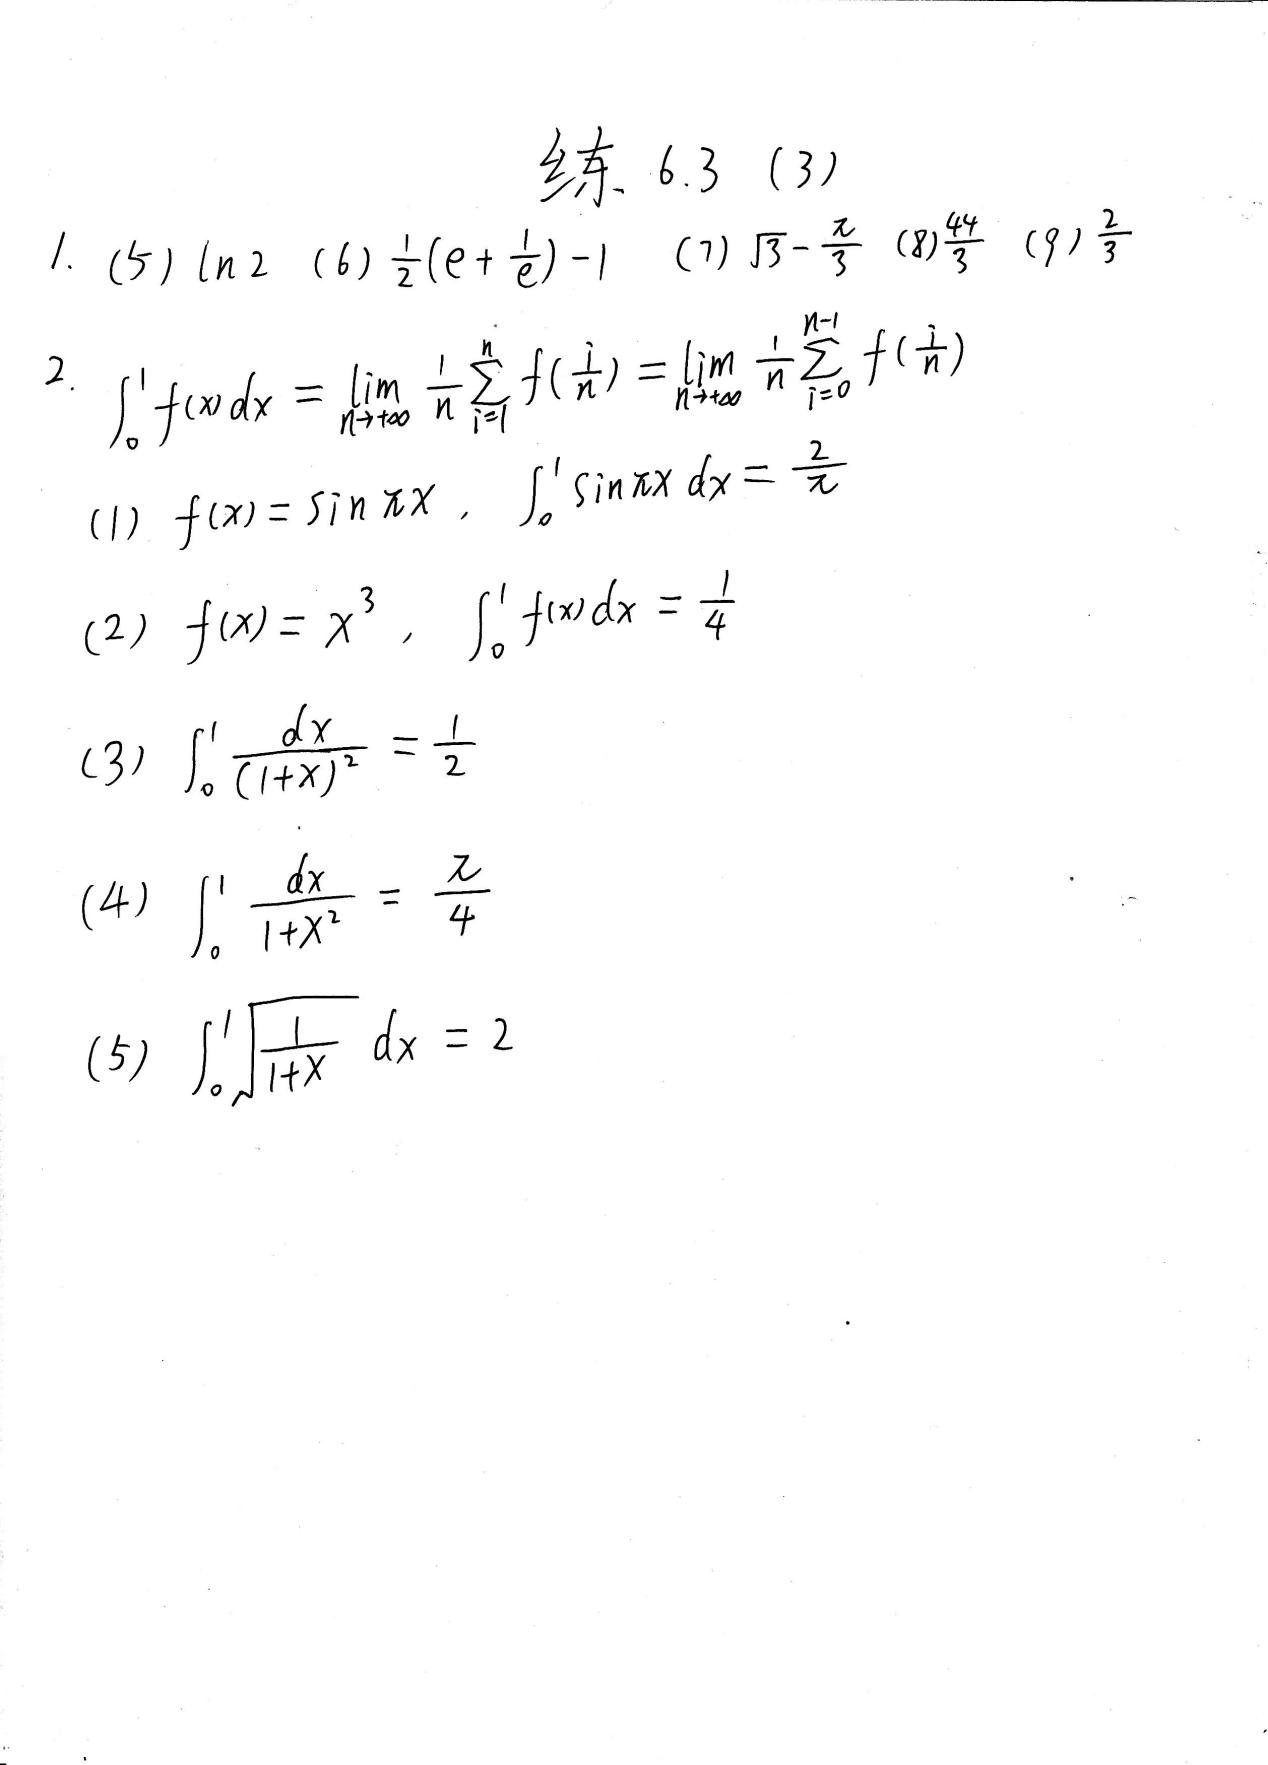 练 6.3 (3)
1. (5) ln2 (6) 1/2(e+1/e)-1 (7) √3-π/3 (8) 44/3 (9) 2/3
2. ∫₀¹ f(x)dx = lim_{n→+∞} 1/n Σ_{i=1}^{n} f(i/n) = lim_{n→+∞} 1/n Σ_{i=0}^{n-1} f(i/n)
(1) f(x)=sinπx, ∫₀¹ sinπx dx = 2/π
(2) f(x)=x³, ∫₀¹ f(x)dx = 1/4
(3) ∫₀¹ dx/(1+x)² = 1/2
(4) ∫₀¹ dx/(1+x²) = π/4
(5) ∫₀¹ √(1/(1+x)) dx = 2